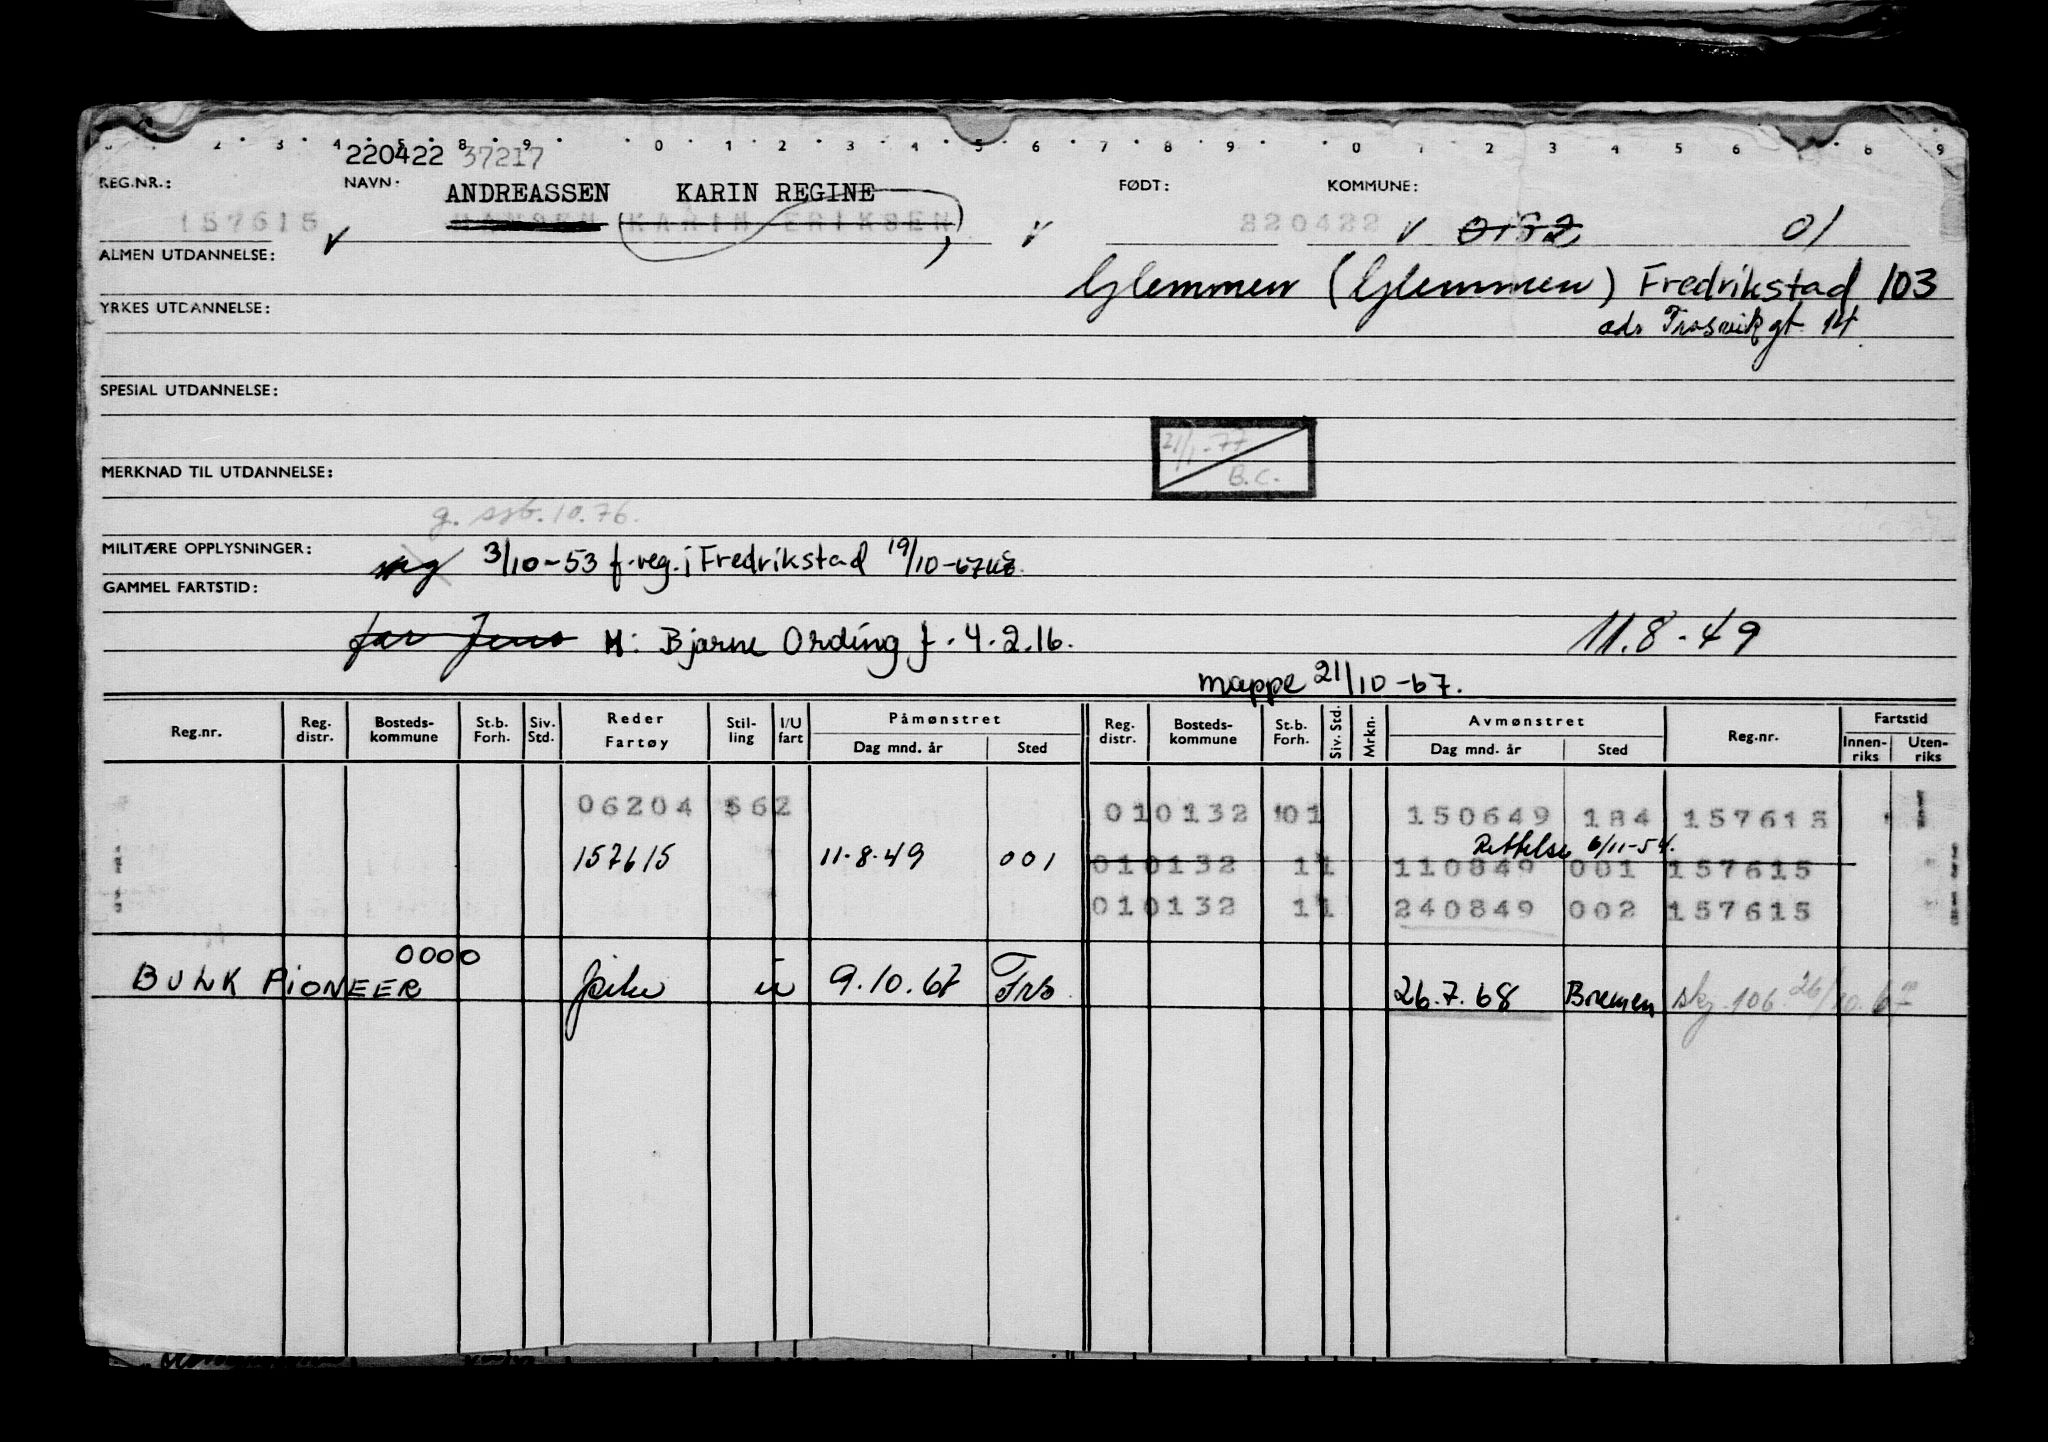 2 3 4 5 8 9 0 1 2 3 4 5 6 7 8 9 0 1 2 3 4 5 6 8 9
220422 37217
REG.NR.: NAVN: ANDREASSEN KARIN REGINE FØDT: KOMMUNE:
157615 HANSEN (KARIN ERIKSEN) 220422 0132 01
ALMEN UTDANNELSE:
Glemmen (Glemmen) Fredrikstad 103
YRKES UTDANNELSE:
adr Trosvikgt. 14
SPESIAL UTDANNELSE:
21/1-77
B.C.
MERKNAD TIL UTDANNELSE:
g. sjb. 10.76.
MILITÆRE OPPLYSNINGER:
3/10-53 f.reg. i Fredrikstad 19/10-67
GAMMEL FARTSTID:
far Jens M: Bjarne Ording f. 4.2.16. 11.8.49
mappe 21/10-67.
Reg.nr. Reg. distr. Bosteds-kommune St.b. Forh. Siv. Std. Reder Fartøy Stil-ling I/U fart Påmønstret Dag mnd. år Sted Reg. distr. Bosteds-kommune St.b. Forh. Siv. Std. Mrkn. Avmønstret Dag mnd. år Sted Reg.nr. Fartstid Innen-riks Uten-riks
06204 562 010132 01 150649 184 157615
Rettelse 6/11-54.
157615 11.8.49 001 010132 11 110849 001 157615
010132 11 240849 002 157615
0000
BULK PIONEER pike u 9.10.67 26.7.68 Bremen